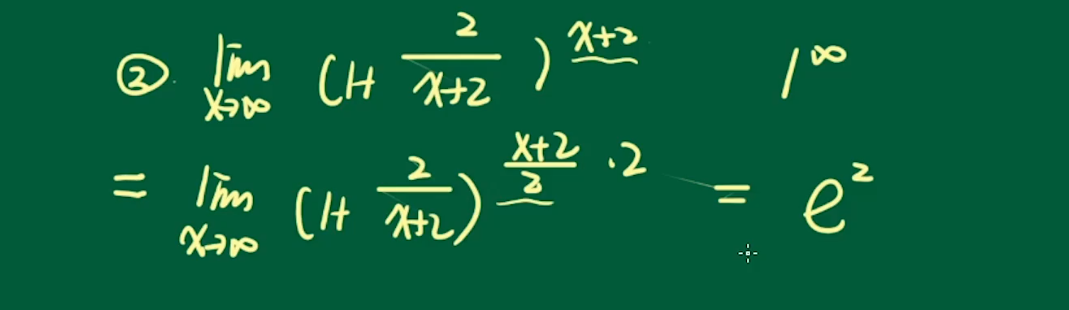 ② lim x→∞ (1+ 2/(x+2))^(x+2) 1^∞
= lim x→∞ (1+ 2/(x+2))^((x+2)/2 ·2) = e^2